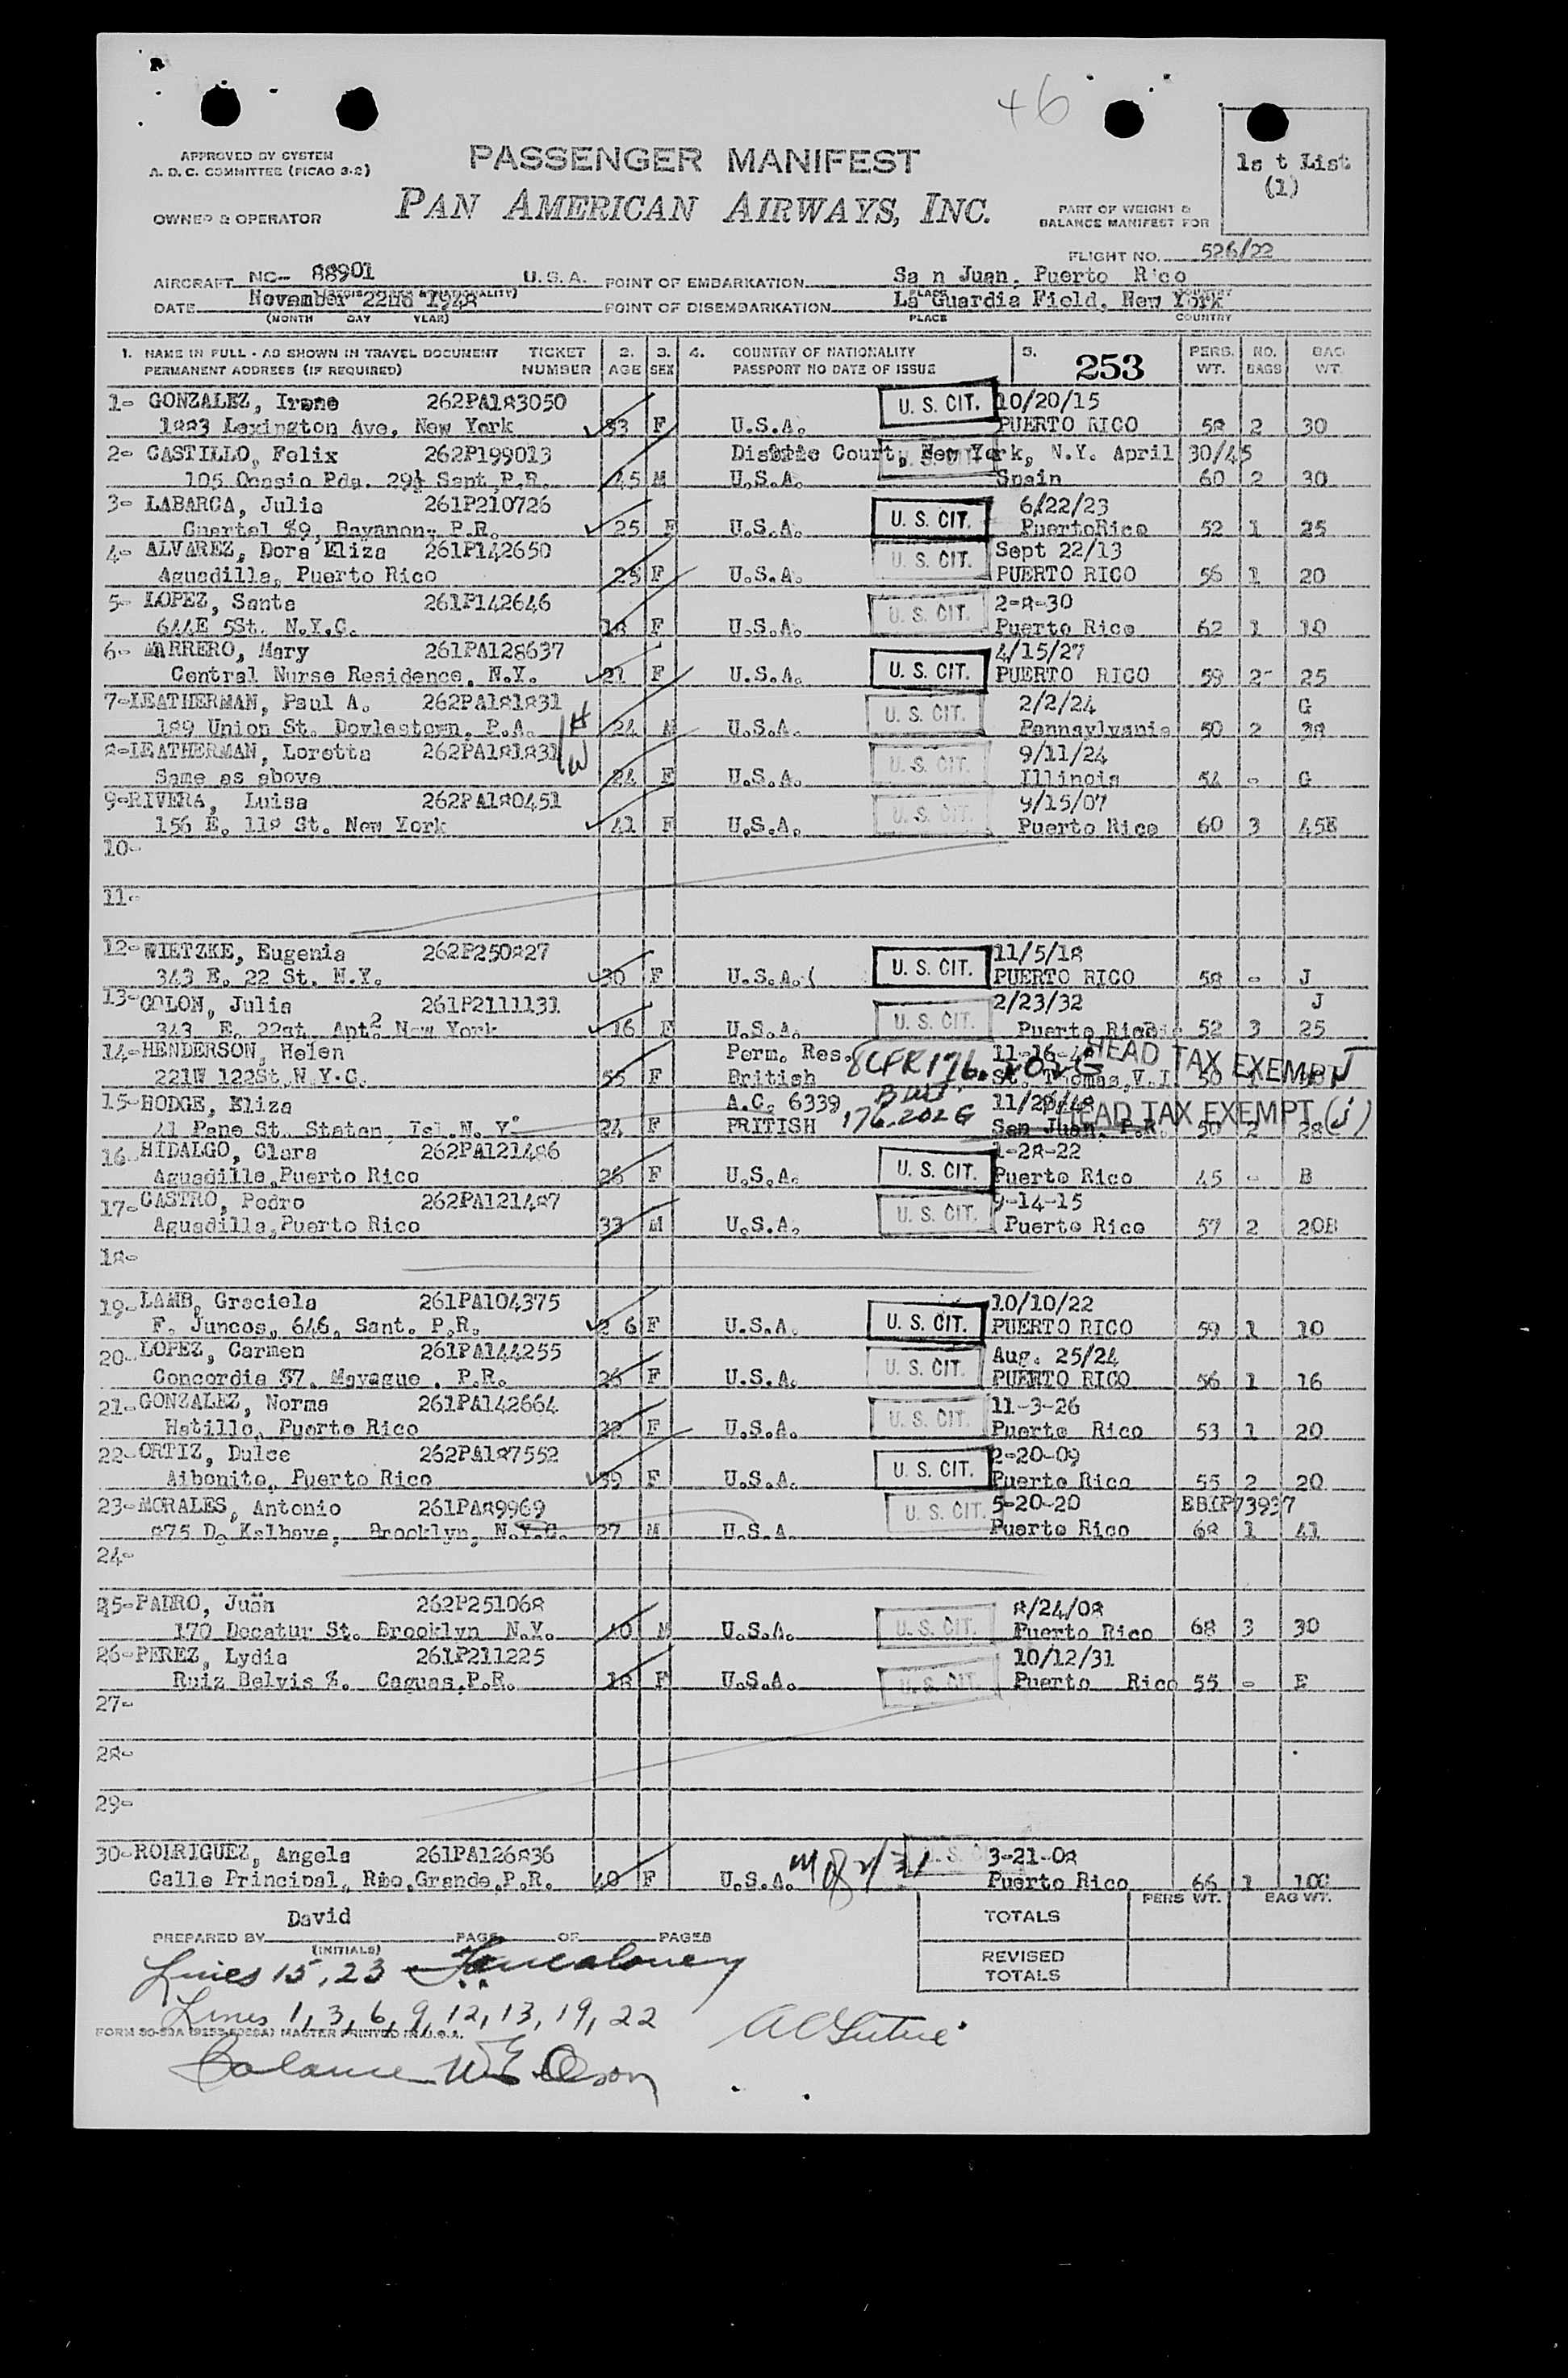 +6
APPROVED BY SYSTEM
A. D. C. COMMITTEE (PICAO 3-2)
PASSENGER MANIFEST
1s t List
(1)
OWNER & OPERATOR
PAN AMERICAN AIRWAYS, INC.
PART OF WEIGHT &
BALANCE MANIFEST FOR
FLIGHT NO. 526/22
AIRCRAFT NC- 88901 U.S.A. POINT OF EMBARKATION Sa n Juan, Puerto Rico
DATE November 22nd 1948 POINT OF DISEMBARKATION La Guardia Field, New York
(MONTH DAY YEAR) PLACE COUNTRY
1. NAME IN FULL - AS SHOWN IN TRAVEL DOCUMENT TICKET 2. 3. 4. COUNTRY OF NATIONALITY 5. 253 PERS. NO. BAG
PERMANENT ADDRESS (IF REQUIRED) NUMBER AGE SEX PASSPORT NO DATE OF ISSUE WT. BAGS WT.
1- GONZALEZ, Irene 262PA183050 U. S. CIT. 10/20/15
1883 Lexington Ave, New York 33 F U.S.A. PUERTO RICO 58 2 30
2- CASTILLO, Felix 262P199013 Court, New York, N.Y. April 30/45
105 Ocasio Pda. 29½ Sant.P.R. 45 M U.S.A. U. S. CIT. Spain 60 2 30
3- LABARCA, Julia 261P210726 U. S. CIT. 6/22/23
Cuartel #9, Bayamon, P.R. 25 F U.S.A. PuertoRico 52 1 25
4- ALVAREZ, Dora Eliza 261P142650 U. S. CIT. Sept 22/13
Aguadilla, Puerto Rico 25 F U.S.A. PUERTO RICO 56 1 20
5- LOPEZ, Santa 261P142646 U. S. CIT. 2-8-30
644E 5St. N.Y.C. 18 F U.S.A. Puerto Rico 62 1 10
6- MARRERO, Mary 261PA128637 4/15/27
Central Nurse Residence, N.Y. 21 F U.S.A. U. S. CIT. PUERTO RICO 59 2- 25
7-LEATHERMAN, Paul A. 262PA181831 H U. S. CIT. 2/2/24 G
189 Union St. Doylestown, P.A. 24 M U.S.A. Pennsylvania 50 2 38
8-LEATHERMAN, Loretta 262PA181831 W U. S. CIT. 9/11/24
Same as above 24 F U.S.A. Illinois 54 - G
9-RIVERA, Luisa 262PA180451 U. S. CIT. 9/15/07
156 E. 118 St. New York 41 F U.S.A. Puerto Rico 60 3 45E
10-
11-
12-WIETZKE, Eugenia 262P250827 U. S. CIT. 11/5/18
343 E. 22 St. N.Y. 30 F U.S.A. PUERTO RICO 58 - J
13-COLON, Julia 261P2111131 U. S. CIT. 2/23/32 J
343 E. 22st. Apt. 2 New York 16 F U.S.A. Puerto Rico 52 3 25
14-HENDERSON, Helen Perm. Res. 8CFR176.202G 11-16-48 HEAD TAX EXEMPT J
221W 122St N.Y.C. 55 F British St. Thomas,V.I 50 1
15-HODGE, Eliza A.C. 6339 11/26/48 HEAD TAX EXEMPT (j)
41 Pane St. Staten, Isl.N. Y. 24 F BRITISH 176.202G San Juan, P.R. 50 2 28
16-HIDALGO, Clara 262PA121486 U. S. CIT. 1-28-22
Aguadilla,Puerto Rico 26 F U.S.A. Puerto Rico 45 - B
17-CASTRO, Pedro 262PA121487 U. S. CIT. 9-14-15
Aguadilla,Puerto Rico 33 M U.S.A. Puerto Rico 57 2 20B
18-
19-LAMB, Graciela 261PA104375 U. S. CIT. 10/10/22
F. Juncos, 646, Sant. P.R. 2 6 F U.S.A. PUERTO RICO 59 1 10
20-LOPEZ, Carmen 261PA144255 U. S. CIT. Aug. 25/24
Concordia 87. Mayague . P.R. 26 F U.S.A. PUERTO RICO 56 1 16
21-GONZALEZ, Norma 261PA142664 U. S. CIT. 11-3-26
Hatillo, Puerto Rico 22 F U.S.A. Puerto Rico 53 1 20
22-ORTIZ, Dulce 262PA187552 U. S. CIT. 2-20-09
Aibonito, Puerto Rico 39 F U.S.A. Puerto Rico 55 2 20
23-MORALES, Antonio 261PA89969 U. S. CIT. 5-20-20 EBIP73937
875 De Kalbave, Brooklyn, N.Y.C. 27 M U.S.A Puerto Rico 68 1 41
24-
25-PADRO, Juan 262P251068 U. S. CIT. 8/24/08
170 Decatur St. Brooklyn N.Y. 40 M U.S.A. Puerto Rico 68 3 30
26-PEREZ, Lydia 261P211225 U. S. CIT. 10/12/31
Ruiz Belvis #. Caguas,P.R. 18 F U.S.A. Puerto Rico 55 - E
27-
28-
29-
30-RODRIGUEZ, Angela 261PA126836 3-21-08
Calle Principal, Rio,Grande,P.R. 40 F U.S.A. Puerto Rico 66 1 10C
David
PREPARED BY PAGE OF PAGES
(INITIALS)
PERS WT. BAG WT.
TOTALS
REVISED
TOTALS
Lines 15, 23
Lines 1, 3, 6, 9, 12, 13, 19, 22
MASTER PRINTED IN U.S.A.
Balance W E Olson